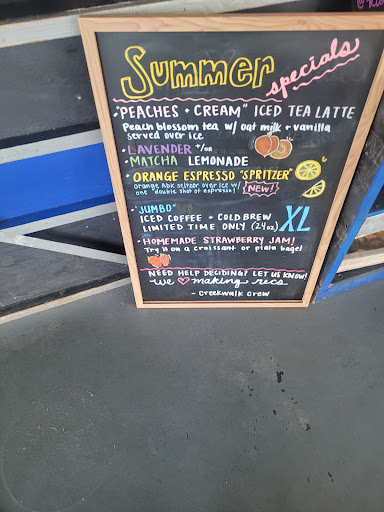 Summer
specials
• "PEACHES + CREAM" ICED TEA LATTE
Peach blossom tea w/ oat milk + vanilla
served over ice
• LAVENDER +/OR
• MATCHA LEMONADE
• ORANGE ESPRESSO "SPRITZER"
Orange Adk seltzer over ice w/
one "double shot of espresso!
NEW!
• "JUMBO"
ICED COFFEE + COLD BREW
LIMITED TIME ONLY (24oz)
XL
• HOMEMADE STRAWBERRY JAM!
Try it on a croissant or plain bagel
NEED HELP DECIDING? LET US KNOW!
we ♡ making recs
- creekwalk crew